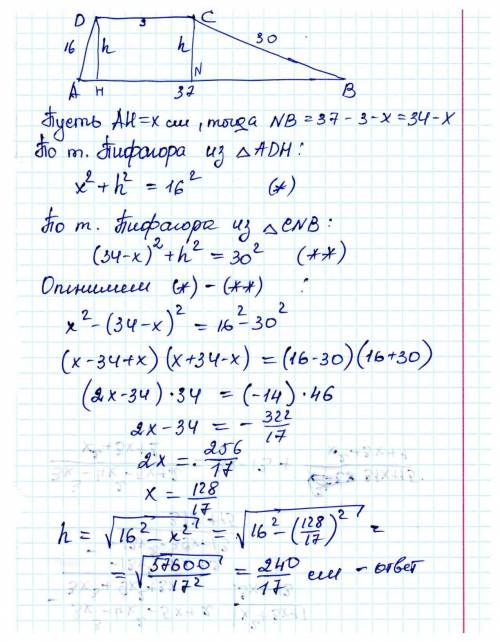 D 3 C
16 h h 30
A H N 37 B
Пусть AH = x см, тогда NB = 37 - 3 - x = 34 - x
По т. Пифагора из △ADH:
x² + h² = 16² (*)
По т. Пифагора из △CNB:
(34-x)² + h² = 30² (**)
Отнимем (*) - (**) :
x² - (34-x)² = 16² - 30²
(x-34+x)(x+34-x) = (16-30)(16+30)
(2x-34)·34 = (-14)·46
2x-34 = - 322/17
2x = 256/17
x = 128/17
h = √(16² - x²) = √(16² - (128/17)²) =
= √(57600/17²) = 240/17 см - ответ